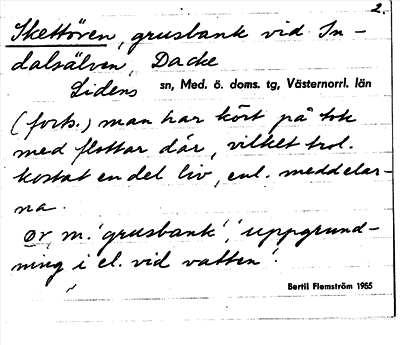 2.
Skettören, grusbank vid In-
dalsälven, Dacke
Lidens sn, Med. ö. doms. tg, Västernorrl. län
(forts.) man har kört på tok
med flottar där, vilket trol.
kostat en del liv, enl. meddelar-
na.
ör, m. 'grusbank', 'uppgrund-
ning i el. vid vatten'.
Bertil Flemström 1955